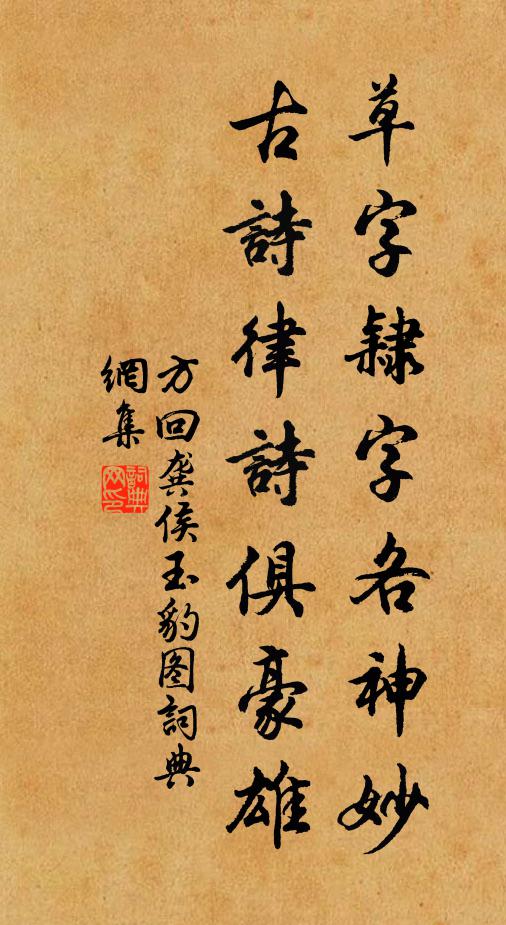 草字隸字各神妙
古詩律詩俱豪雄
方回龚侯玉豹图詞典
網集
詞典網印